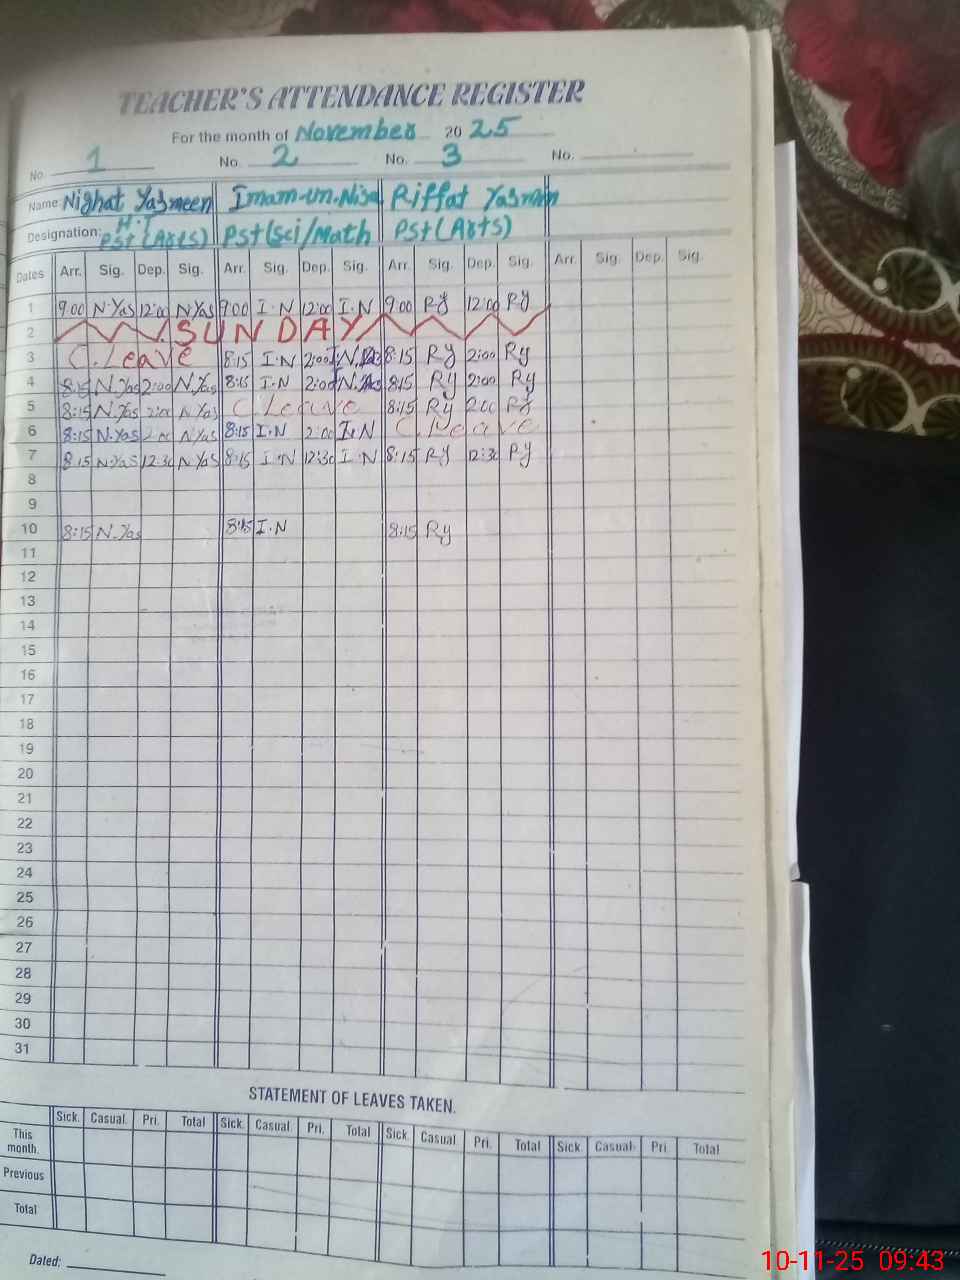 TEACHER'S ATTENDANCE REGISTER
For the month of November 20 25
No. 1 No. 2 No. 3 No.
Name: Nighat Yasmeen Imam-un-Nisa Riffat Yasmin
H.T
Designation: Pst (Arts) Pst (Sci/Math Pst (Arts)
Dates Arr. Sig. Dep. Sig. Arr. Sig. Dep. Sig. Arr. Sig. Dep. Sig. Arr. Sig. Dep. Sig.
1 9:00 N.Yas 12:00 N.Yas 9:00 I.N 12:00 I.N 9:00 Ry 12:00 Ry
2 SUNDAY
3 C.Leave 8:15 I.N 2:00 I.N 8:15 Ry 2:00 Ry
4 8:15 N.Yas 2:00 N.Yas 8:15 I.N 2:00 I.N 8:15 Ry 2:00 Ry
5 8:15 N.Yas 2:00 N.Yas C.Leave 8:15 Ry 2:00 Ry
6 8:15 N.Yas 2:00 N.Yas 8:15 I.N 2:00 I.N C.Leave
7 8:15 N.Yas 12:30 N.Yas 8:15 I.N 12:30 I.N 8:15 Ry 12:30 Ry
8
9
10 8:15 N.Yas 8:15 I.N 8:15 Ry
11
12
13
14
15
16
17
18
19
20
21
22
23
24
25
26
27
28
29
30
31
STATEMENT OF LEAVES TAKEN.
Sick. Casual. Pri. Total Sick. Casual Pri. Total Sick. Casual Pri. Total Sick. Casual Pri. Total
This month.
Previous
Total
Dated:
10-11-25 09:43